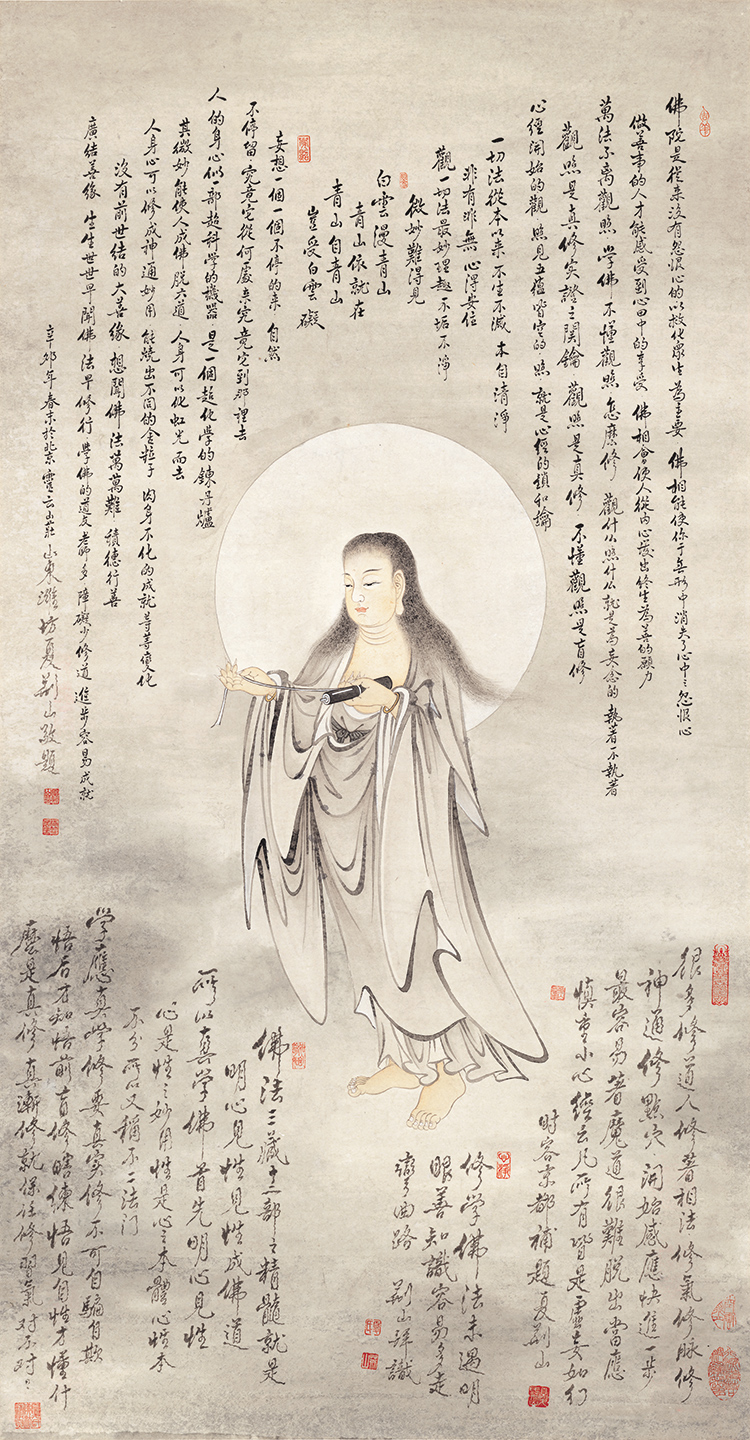 佛院是從来沒有怨恨心的以救化眾生為主要 佛相能使你于無形中消失了心中之怨恨心
做善事的人才能感受到心田中的享受 佛相會使人從内心發出終生為善的願力
萬法不離觀照 學佛人不懂觀照 怎麽修 觀什么照什么就是為妄念的執著不執著
觀照是真修实證之関鑰 觀照是真修 不懂觀照是盲修
心經開始的觀 照見五蘊皆空的 照 就是心經的鎖和鑰
一切法從本以来 不生不滅 本自清淨
非有非無 心得安住
觀一切法最妙理趣 不垢不淨
微妙難得見
白雲漫青山
青山依就在
青山自青山
豈受白雲礙
妄想一個一個不停的来 自然
不停留 究竟它從何處来 究竟它到那裡去
人的身心似一部超科學的機器 是一個超化學的鍊丹爐
其微妙能使人成佛脱六道 人身可以化虹光而去
人身心可以修成神通妙用 能燒出不同的金粒子 肉身不化的成就等等變化
沒有前世结的大善緣 想聞佛法萬萬難 積德行善
廣结善緣 生生世世早聞佛法早修行 學佛的道友老師多 障礙少修道 進步容易成就
辛卯年春末於北京靈云山莊 山東濰坊夏荊山敬題
很多修道人修著相法修氣修脉修
神通修點穴 開始感應快進一步
最容易著魔道很難脱出當應
慎重小心 經云凡所有皆是虛妄如幻
时客京都補題夏荊山
修学佛法未遇明
眼善知識容易多走
彎曲路 荊山拜識
佛法三藏十二部之精髓就是
明心見性見性成佛道
所以真学佛首先明心見性
心是性之妙用性是心之本體心性本
不分所以又稱不二法门
学應真学修要真实修不可自騙自欺
悟后才知悟前盲修瞎练悟見自性才懂什
麽是真修真漸修就保任修習氣对不对